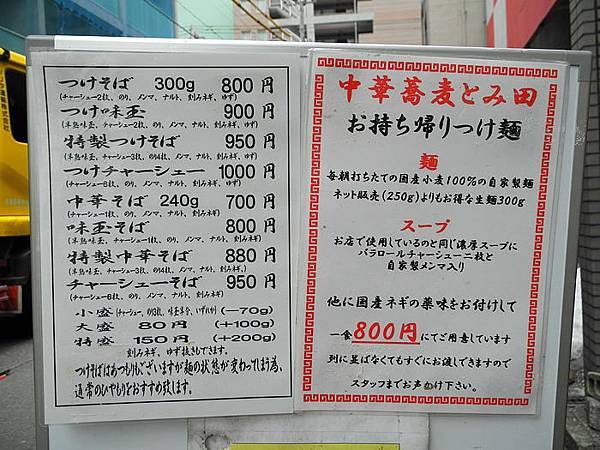 つけそば 300g 800 円
(チャーシュー2枚、のり、メンマ、ナルト、刻みネギ、ゆず)
つけ味玉 900 円
(半熟味玉、チャーシュー2枚、のり、メンマ、ナルト、刻みネギ、ゆず)
特製つけそば 950 円
(半熟味玉、チャーシュー3枚、のり4枚、メンマ、ナルト、刻みネギ、ゆず)
つけチャーシュー 1000 円
(チャーシュー6枚、のり、メンマ、ナルト、刻みネギ、ゆず)
中華そば 240g 700 円
(チャーシュー1枚、のり、メンマ、ナルト、刻みネギ)
味玉そば 800 円
(半熟味玉、チャーシュー1枚、のり、メンマ、ナルト、刻みネギ)
特製中華そば 880 円
(半熟味玉、チャーシュー3枚、のり4枚、メンマ、ナルト、刻みネギ)
チャーシューそば 950 円
(チャーシュー6枚、のり、メンマ、ナルト、刻みネギ)
小盛 (－70g)
大盛 80円 (＋100g)
特盛 150円 (＋200g)
刻みネギ、ゆず抜きもできます。
つけそばはあつもりもございますが麺の状態が変わってしまう為、
通常のひやもりをおすすめ致します。
中華蕎麦とみ田
お持ち帰りつけ麺
麺
毎朝打ちたての国産小麦100%の自家製麺
ネット販売(250g)よりもお得な生麺300g
スープ
お店で使用しているのと同じ濃厚スープに
バラロールチャーシュー二枚と
自家製メンマ入り
他に国産ネギの薬味をお付けして
一食800円にてご用意しています
列に並ばなくてもすぐにお渡しできますので
スタッフまでお声かけ下さい。